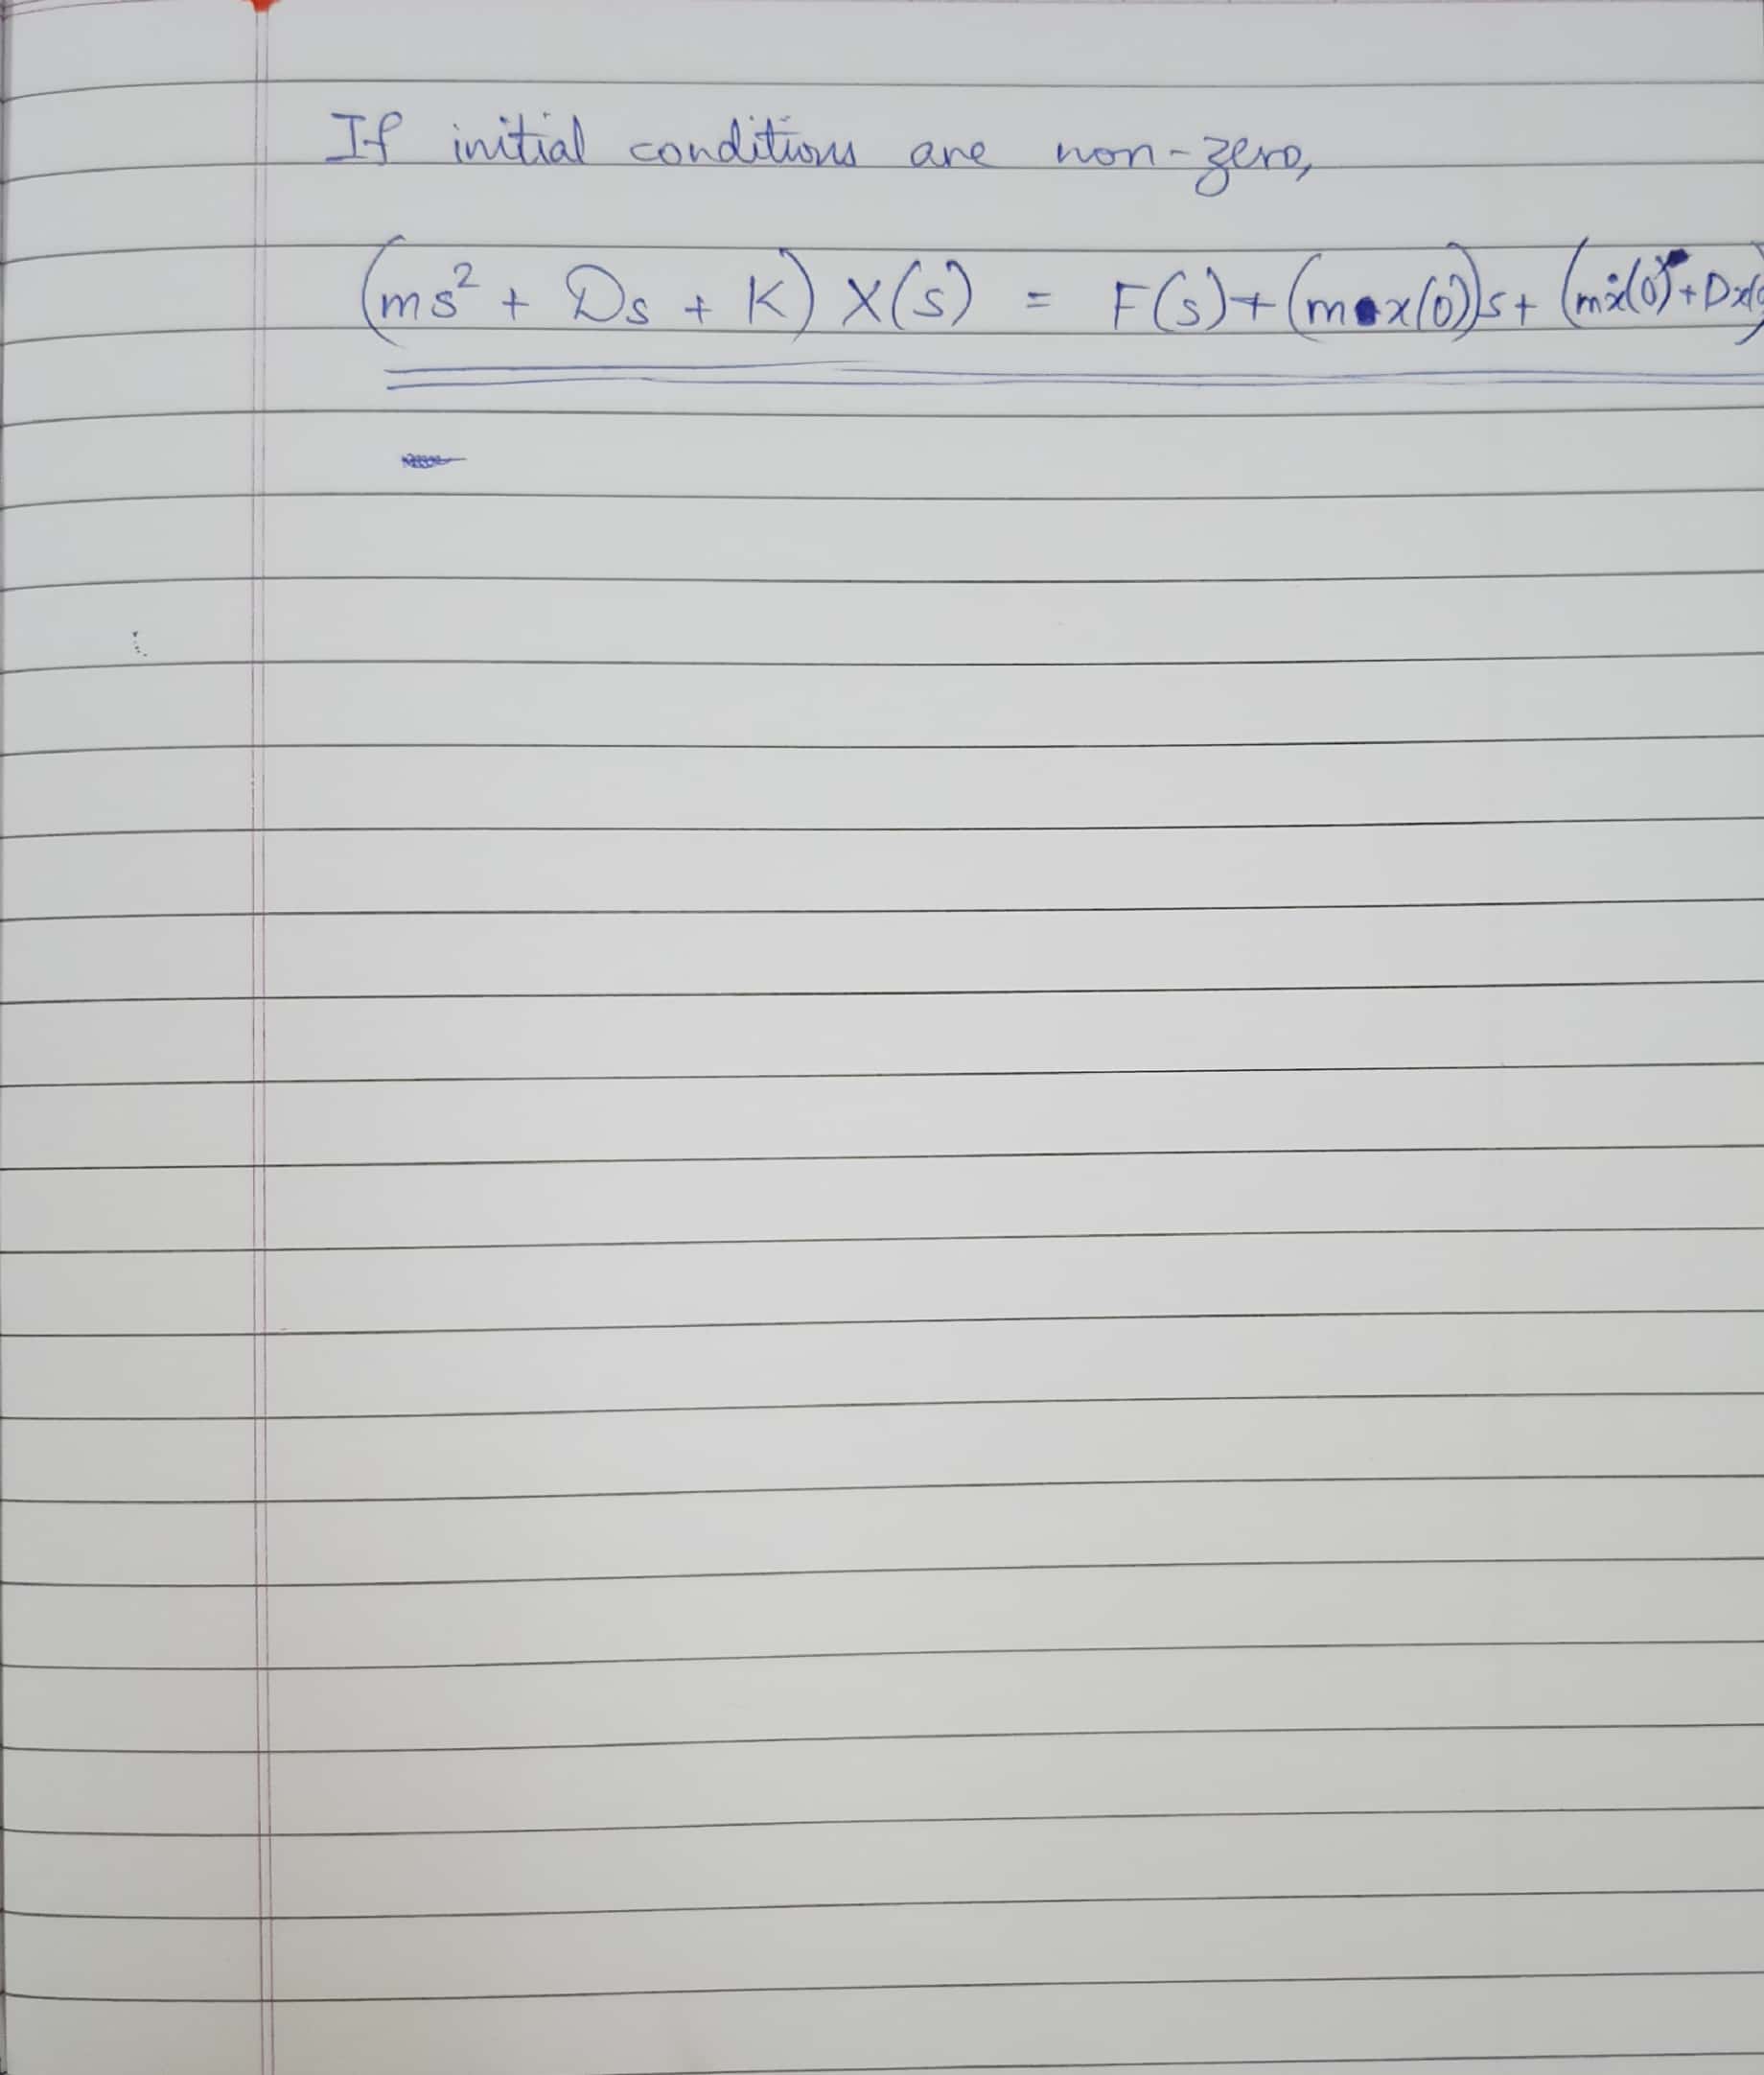 If initial conditions are non-zero,
(ms² + Ds + K) X(s) = F(s) + (m x(0))s + (mẋ(0) + Dx(